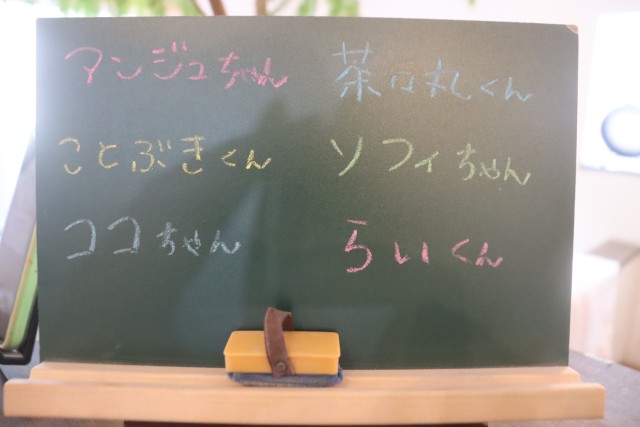 マンジュちゃん
茶々丸くん
ことぶきくん
ソフィちゃん
ココちゃん
らいくん